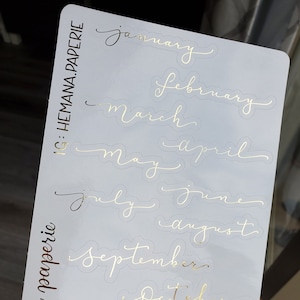 january
february
march
april
may
june
july
august
september
IG: HEMANA.PAPERIE
paperie